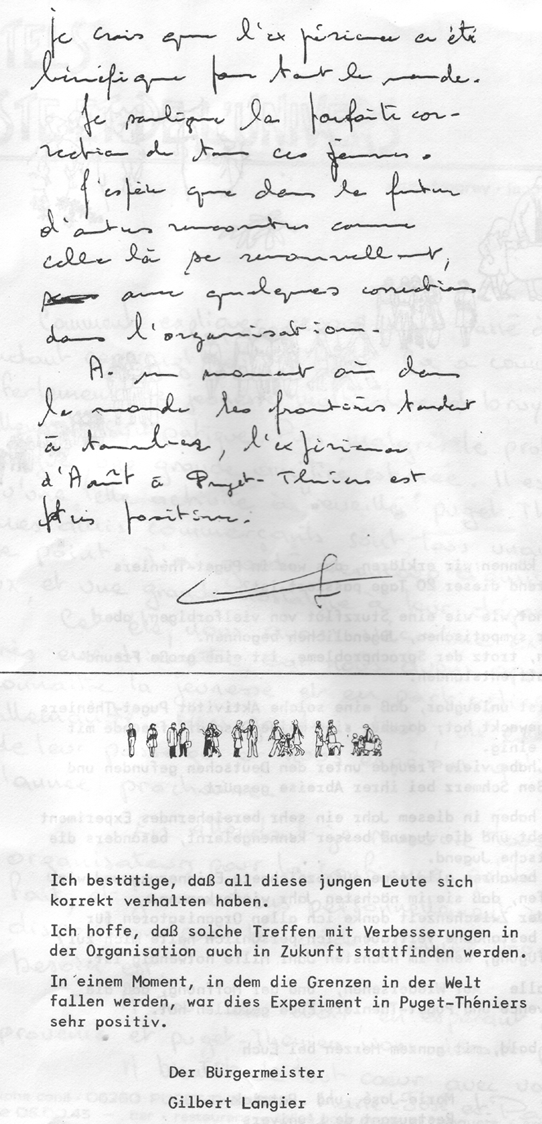 je crois que l'expérience a été
bénéfique pour tout le monde.
Je souligne la parfaite cor-
rection de tous ces jeunes.
J'espère que dans le futur
d'autres rencontres comme
celle là se renouvellent,
avec quelques corrections
dans l'organisation.
A un moment où dans
le monde les frontières tendent
à tomber, l'expérience
d'Août à Puget-Théniers est
très positive.
Ich bestätige, daß all diese jungen Leute sich
korrekt verhalten haben.
Ich hoffe, daß solche Treffen mit Verbesserungen in
der Organisation auch in Zukunft stattfinden werden.
In einem Moment, in dem die Grenzen in der Welt
fallen werden, war dies Experiment in Puget-Théniers
sehr positiv.
Der Bürgermeister
Gilbert Langier